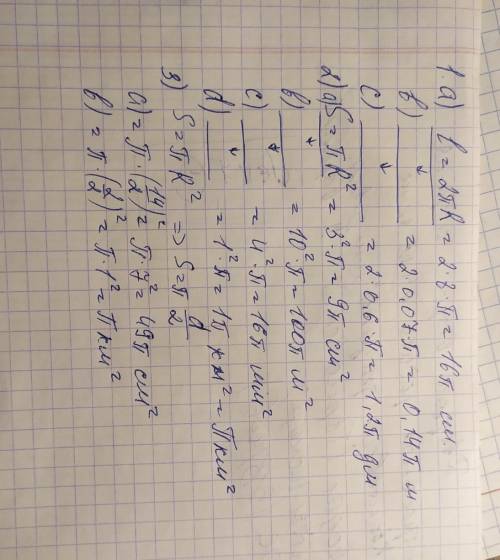 1. a) l = 2πR = 2·8·π = 16π см.
b) ↓ = 2·0,07·π = 0,14π м
c) ↓ = 2·0,6·π = 1,2π дм
2) a) S = πR² = 3²·π = 9π см²
b) ↓ = 10²·π = 100π м²
c) ↓ = 4²·π = 16π мм²
d) ↓ = 1²·π = 1π км² = π км²
3) S = πR² => S = π d/2
a) = π·(14/2)² = π·7² = 49π см²
b) = π·(2/2)² = π·1² = π км²